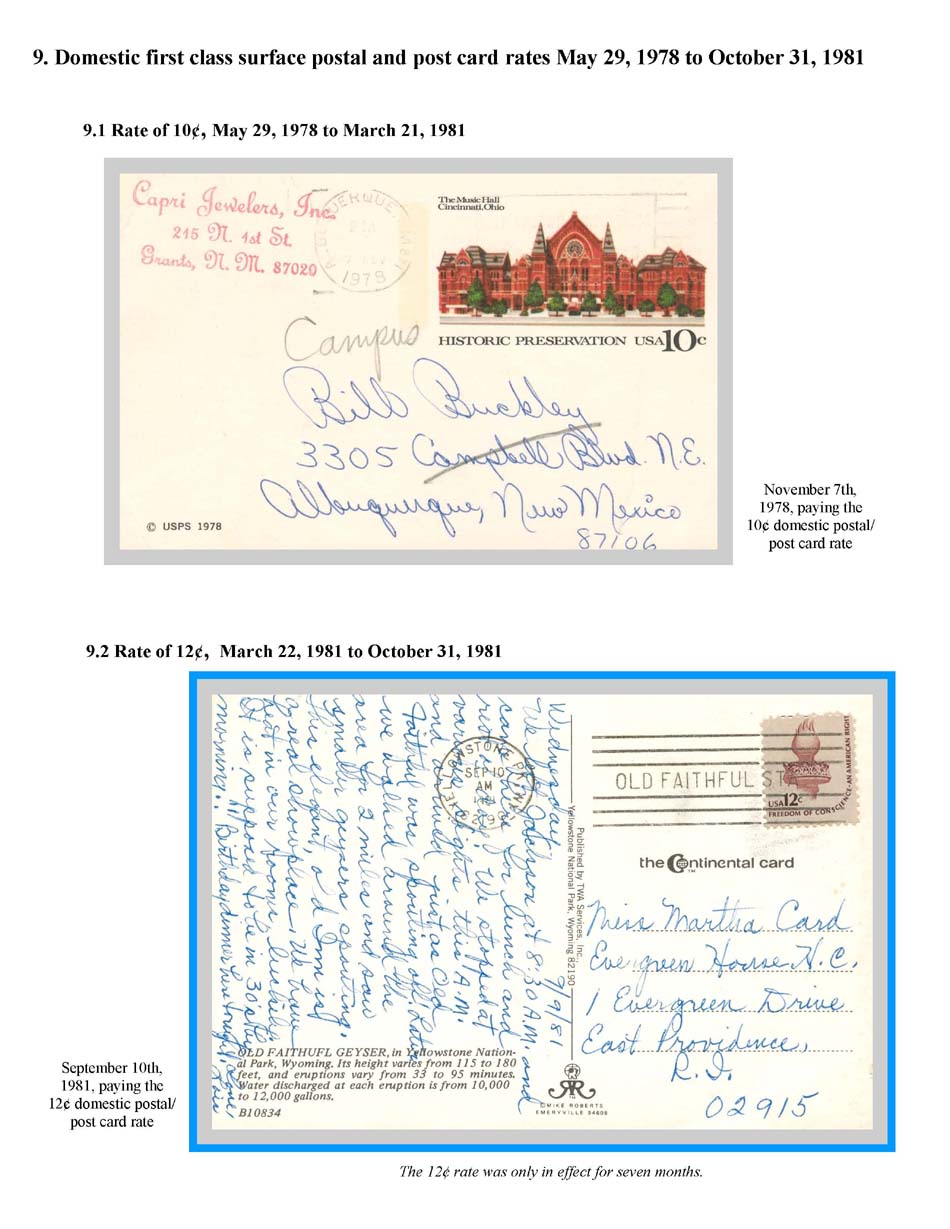 9. Domestic first class surface postal and post card rates May 29, 1978 to October 31, 1981
9.1 Rate of 10¢, May 29, 1978 to March 21, 1981
Capri Jewelers, Inc.
215 N. 1st St.
Grants, N. M. 87020
1978
The Music Hall
Cincinnati, Ohio
HISTORIC PRESERVATION USA 10c
Campus
Bill Buckley
3305 Campbell Blvd. N.E.
Albuquerque, New Mexico
87106
© USPS 1978
November 7th,
1978, paying the
10¢ domestic postal/
post card rate
9.2 Rate of 12¢, March 22, 1981 to October 31, 1981
Wednesday 9/9/81
We left Jackson at 8:30 A.M. and
came for lunch and
We stopped at
this A.M.
and just as Old
Faithful was spouting off. Later
we walked around the
area for 2 miles and saw
smaller geysers spouting.
This elegant old Inn is
a real showplace. We have
heat in our rooms luckily
It is supposed to be in 30s by
morning.
Birthday dinner here tonight. Love,
Lois
YELLOWSTONE
SEP 10
AM
OLD FAITHFUL ST
USA 12c
FREEDOM OF CONSCIENCE-AN AMERICAN RIGHT
the Continental card
TM
Published by TWA Services, Inc.,
Yellowstone National Park, Wyoming 82190
Miss Martha Card
Evergreen House H.C.
1 Evergreen Drive
East Providence,
R.I.
02915
OLD FAITHUFL GEYSER, in Yellowstone Nation-
al Park, Wyoming. Its height varies from 115 to 180
feet, and eruptions vary from 33 to 95 minutes.
Water discharged at each eruption is from 10,000
to 12,000 gallons.
B10834
©MIKE ROBERTS
EMERYVILLE 94608
September 10th,
1981, paying the
12¢ domestic postal/
post card rate
The 12¢ rate was only in effect for seven months.